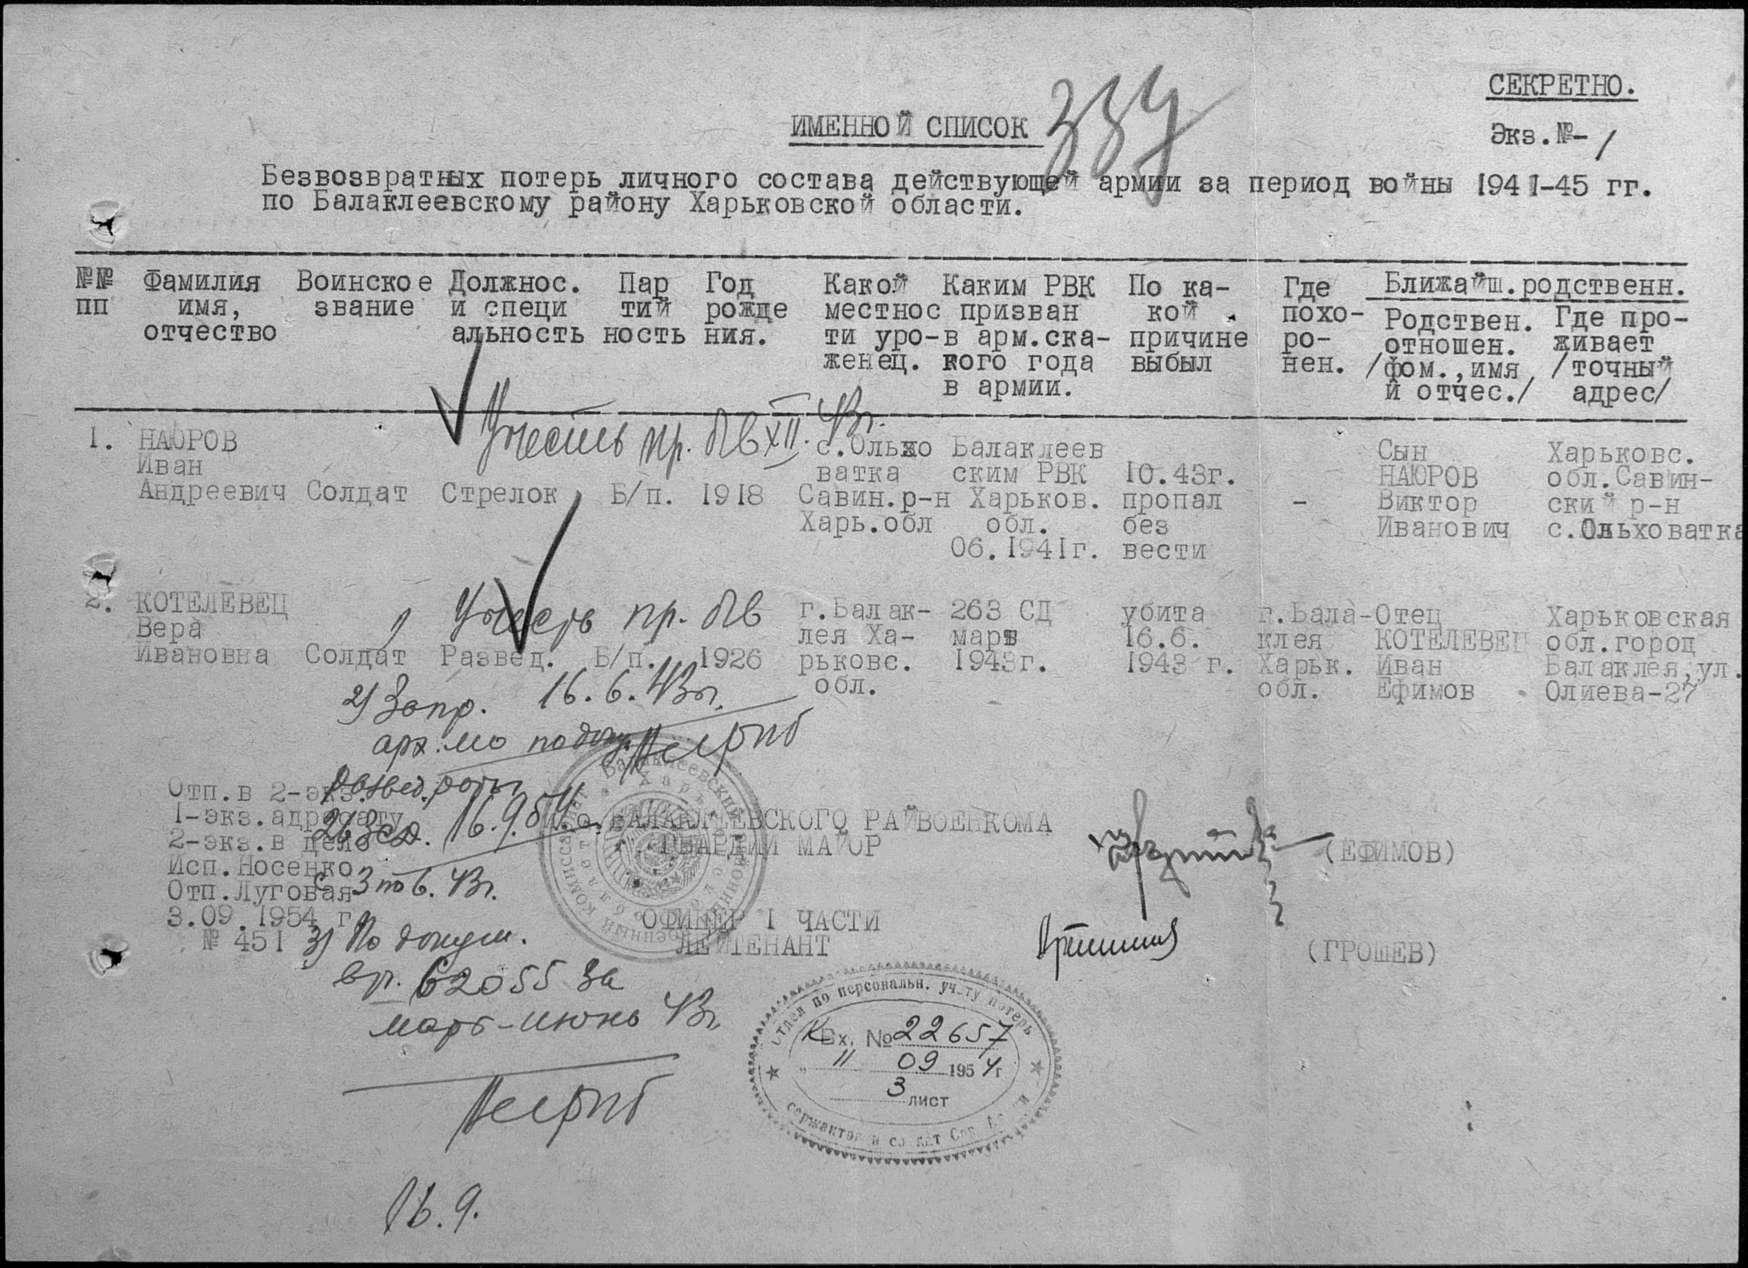 СЕКРЕТНО.
Экз.№-1
ИМЕННОЙ СПИСОК
Безвозвратных потерь личного состава действующей армии за период войны 1941-45 гг.
по Балаклеевскому району Харьковской области.
№№ пп
Фамилия имя, отчество
Воинское звание
Должнос. и специ альность
Пар тий ность
Год рожде ния.
Какой местнос ти уро- женец.
Каким РВК призван в арм.ска- кого года в армии.
По ка- кой причине выбыл
Где похо- ро- нен.
Ближайш.родственн.
Родствен. отношен. /фом.,имя й отчес./
Где про- живает /точный адрес/
Учесть пр. б/в XII. 43г.
1.
НАЮРОВ Иван Андреевич
Солдат
Стрелок
Б/п.
1918
с.Ольхо ватка Савин.р-н Харь.обл
Балаклеев ским РВК Харьков. обл. 06.1941г.
10.43г. пропал без вести
-
Сын НАЮРОВ Виктор Иванович
Харьковс. обл.Савин- ский р-н с.Ольховатка
2.
КОТЕЛЕВЕЦ Вера Ивановна
Солдат
Развед.
Б/п.
1926
г.Балак- лея Ха- рьковс. обл.
263 СД март 1943г.
убита 16.6. 1943 г.
г.Бала- клея Харьк. обл.
Отец КОТЕЛЕВЕЦ Иван Ефимов
Харьковская обл.город Балаклея,ул. Олиева-27
Учесть пр. б/в
16.6.43г.
2) Запр.
арх. мо по док.
развед.роты
263 сд. 16.9.54
с 3 по 6. 43г.
3) По докум.
вр. 62055 за
март-июнь 43г.
16.9.
Отп.в 2-экз.
1-экз.адресату
2-экз.в дело
Исп.Носенко
Отп.Луговая
3.09.1954 г
№ 451
БАЛАКЛЕЕВСКОГО РАЙВОЕНКОМА
ГВАРДИИ МАЙОР
(ЕФИМОВ)
ОФИЦЕР 1 ЧАСТИ
ЛЕЙТЕНАНТ
(ГРОШЕВ)
Отдел по персональн. учету потерь
Вх. № 22657
" 11 09 1954г
3 лист
сержантов и солдат Сов. Армии